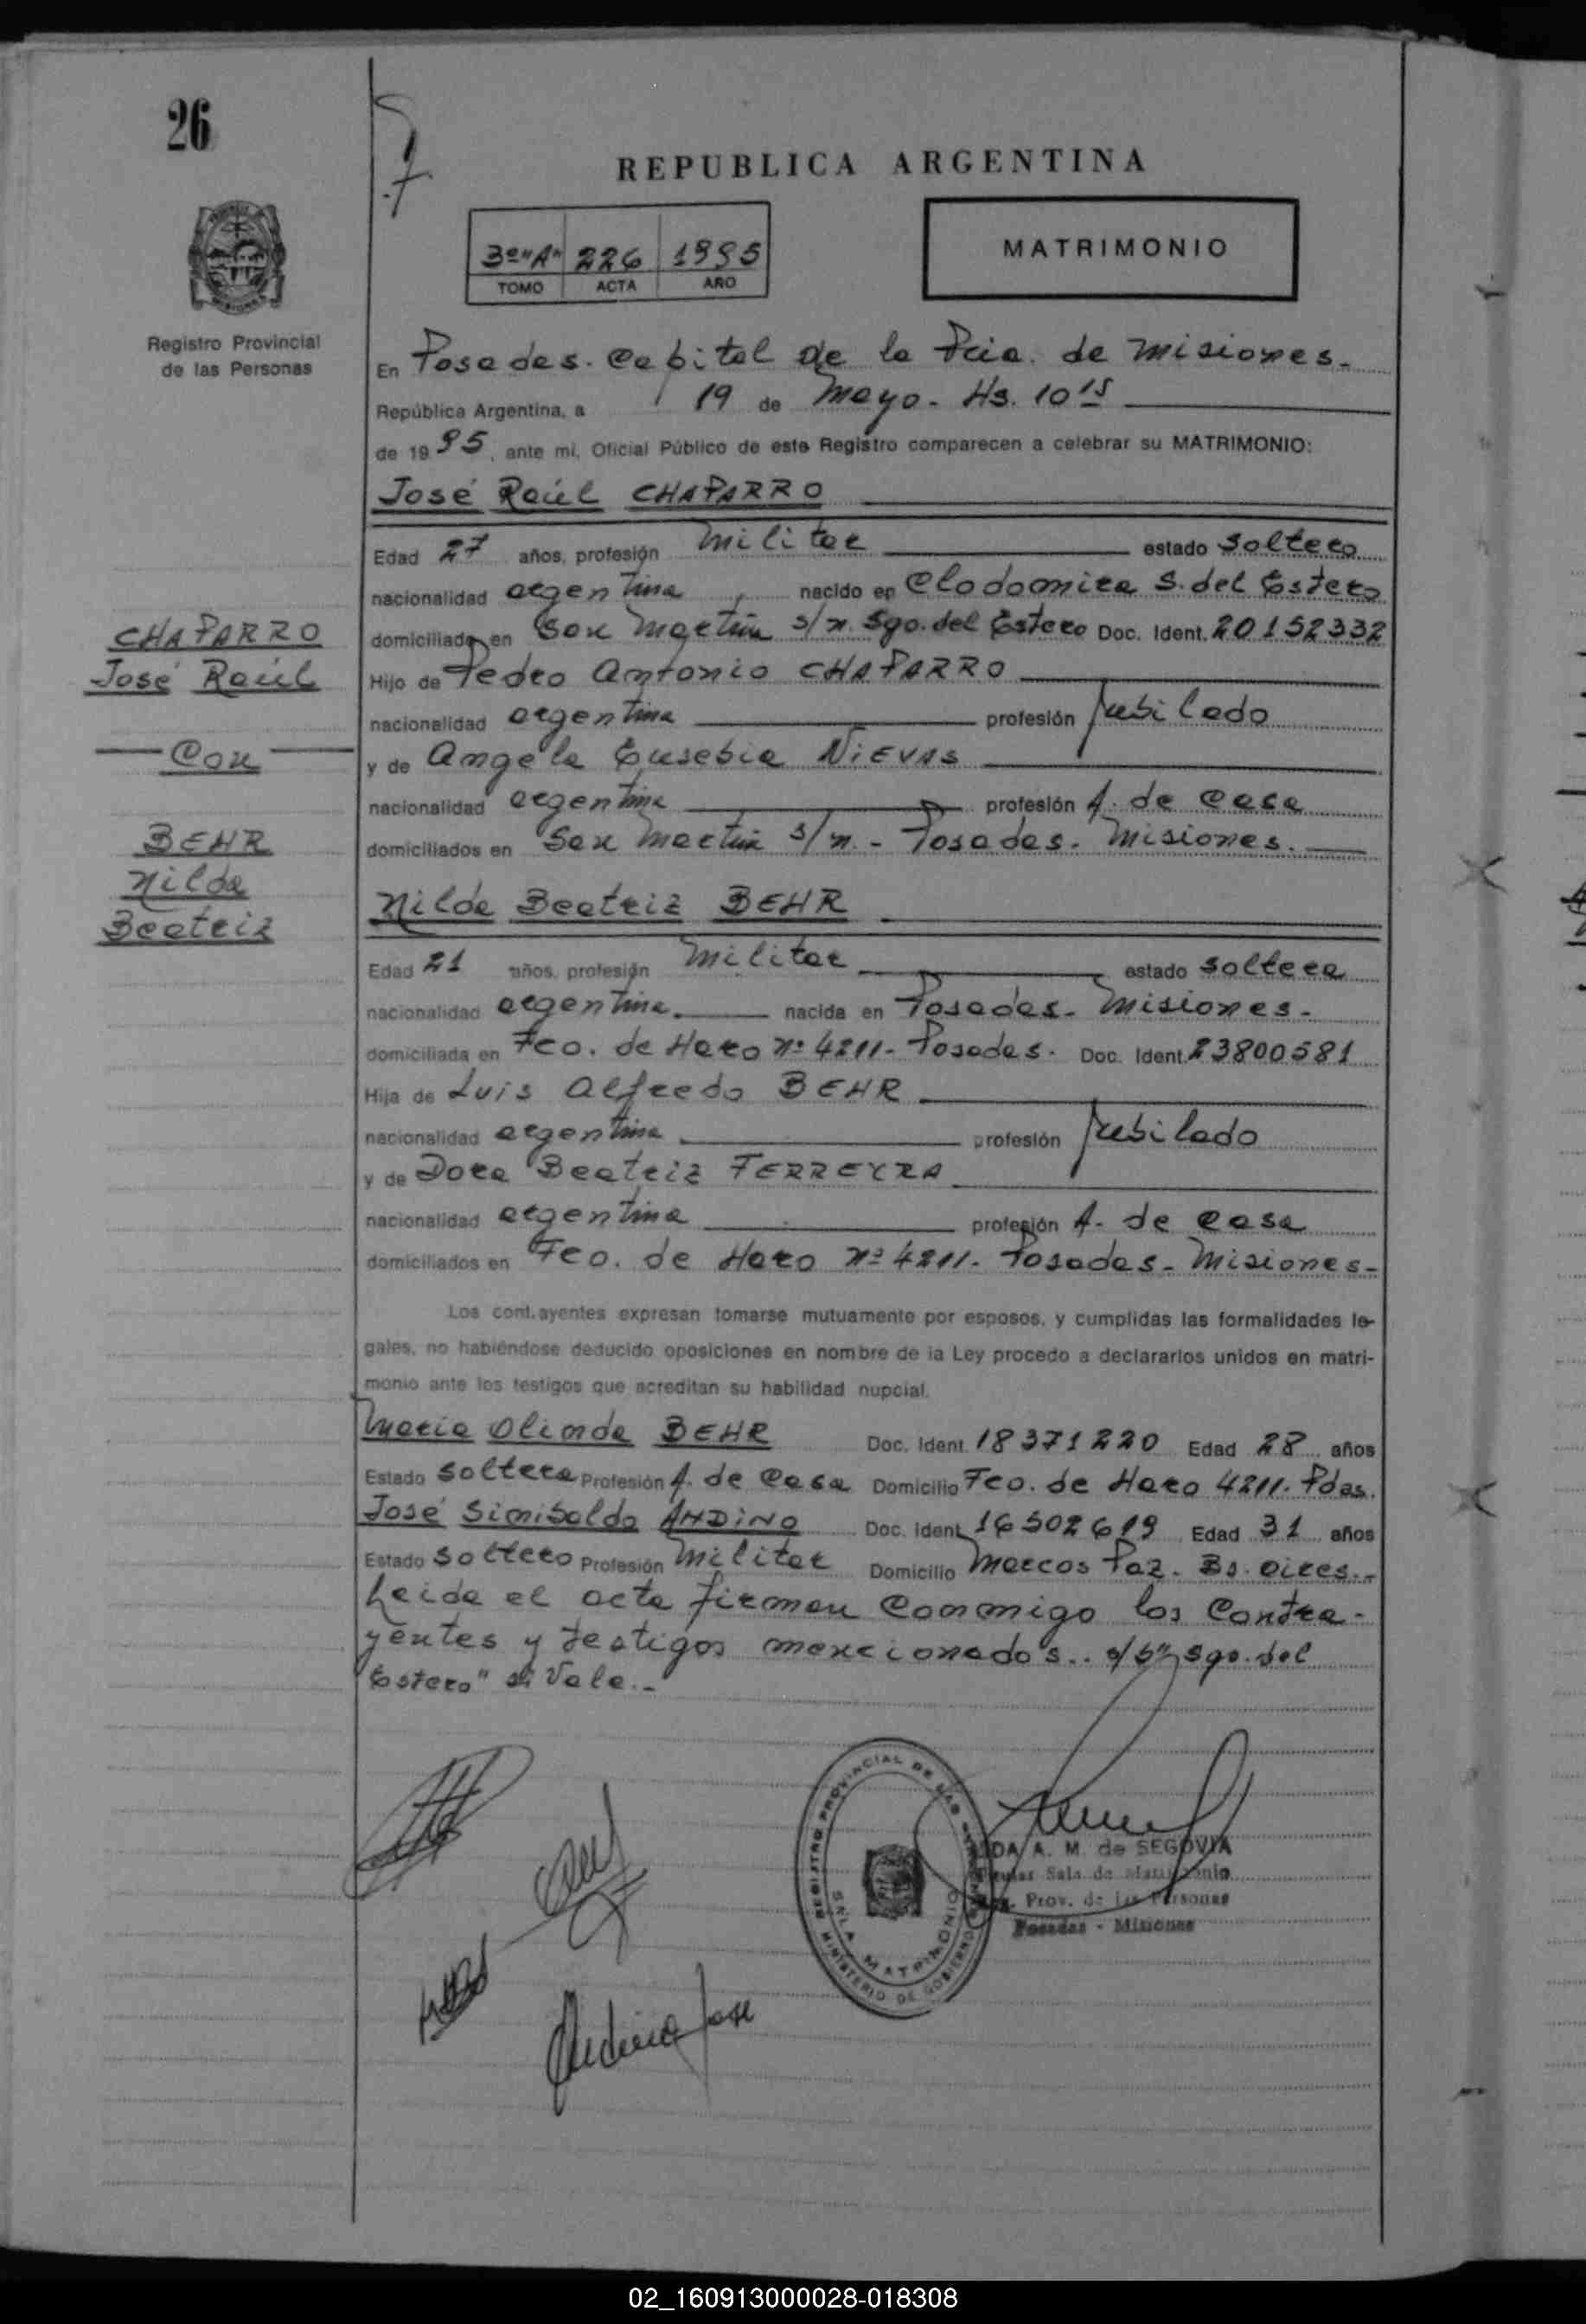 26
REPUBLICA ARGENTINA
3º "A" 226 1995
TOMO ACTA AÑO
MATRIMONIO
Registro Provincial
de las Personas
En Posadas. Capital de la Pcia. de Misiones.
República Argentina, a 19 de Mayo. Hs. 10 15
de 1995, ante mi, Oficial Público de este Registro comparecen a celebrar su MATRIMONIO:
José Raúl CHAPARRO
Edad 27 años, profesión Militar estado soltero
nacionalidad argentina nacido en Clodomira S. del Estero
domiciliado en San Martín s/n. Sgo. del Estero Doc. Ident. 20152332
Hijo de Pedro Antonio CHAPARRO
nacionalidad argentina profesión Jubilado
y de Angela Eusebia NIEVAS
nacionalidad argentina profesión A. de Casa
domiciliados en San Martín s/n. - Posadas. Misiones.
CHAPARRO
José Raúl
Con
BEHR
Nilda
Beatriz
Nilda Beatriz BEHR
Edad 21 años, profesión Militar estado soltera
nacionalidad argentina. nacida en Posadas. Misiones.
domiciliada en Fco. de Haro Nº 4211. Posadas. Doc. Ident. 23800581
Hija de Luis Alfredo BEHR
nacionalidad argentina profesión Jubilado
y de Dora Beatriz FERREYRA
nacionalidad argentina profesión A. de Casa
domiciliados en Fco. de Haro Nº 4211. Posadas. Misiones.
Los cont.ayentes expresan tomarse mutuamente por esposos, y cumplidas las formalidades le-
gales, no habiéndose deducido oposiciones en nombre de la Ley procedo a declararlos unidos en matri-
monio ante los testigos que acreditan su habilidad nupcial.
María Olinda BEHR Doc. Ident. 18371220 Edad 28 años
Estado Soltera Profesión A. de Casa Domicilio Fco. de Haro 4211. Pdas.
José Sinibaldo ANDINO Doc. Ident. 16502619 Edad 31 años
Estado Soltero Profesión Militar Domicilio Marcos Paz. Bs. Aires.
Leída el acta firman conmigo los Contra-
yentes y testigos mencionados.. Sgo. del
Estero" Vale.-
REGISTRO PROVINCIAL DE LAS
SALA MATRIMONIO
MINISTERIO DE GOBIERNO
A. M. de SEGOVIA
Sala de Matrimonio
Prov. de las Personas
Posadas - Misiones
José
02_160913000028-018308